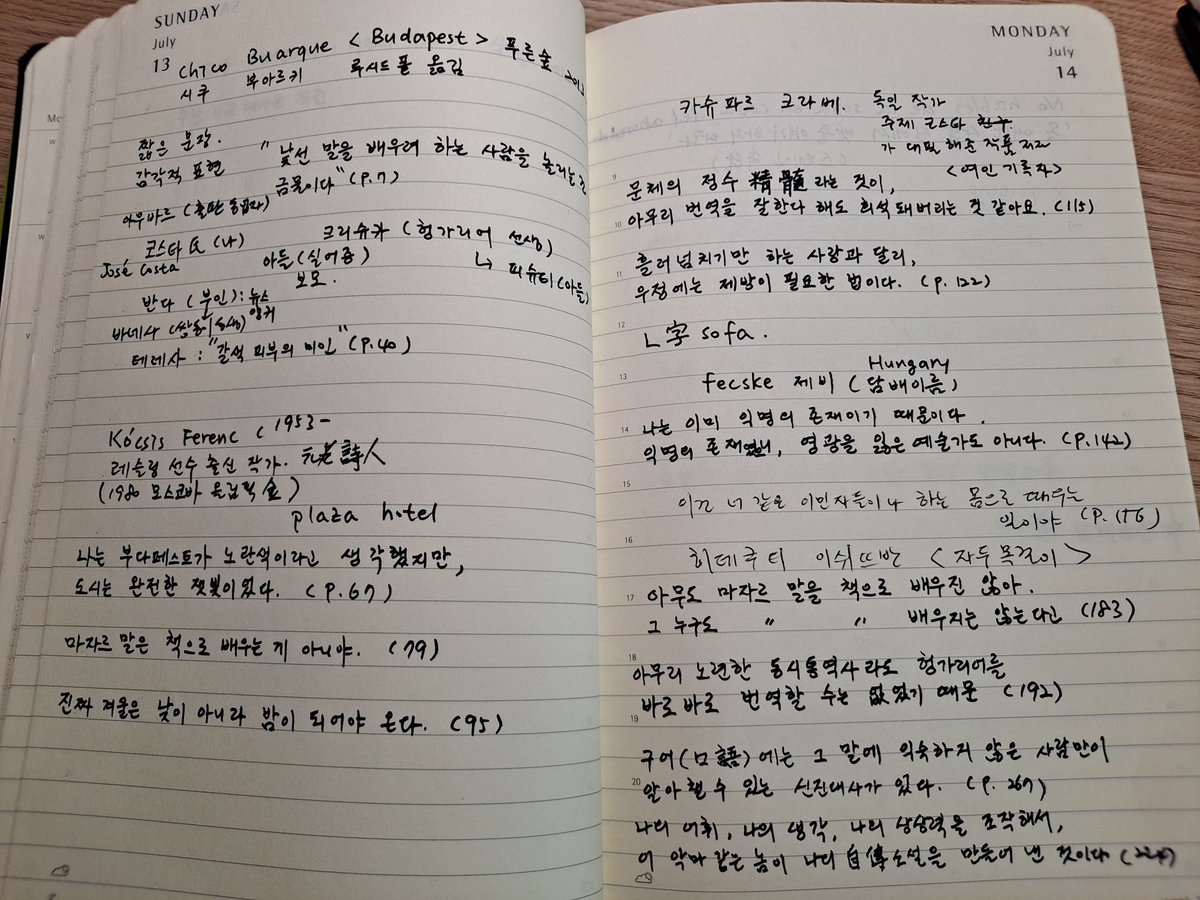 SUNDAY
July
13
Chico Buarque < Budapest > 푸른숲
시쿠 부아르키 루시드폴 옮김
짧은 문장.
감각적 표현
"낯선 말을 배우려 하는 사람을 놀리는 건
금물이다" (P.7)
아우바르 (출판 동업자)
코스타 氏 (나)
José Costa
크리슈카 (헝가리어 선생)
↳ 피슈티 (아들)
아들 (실어증)
보모.
반다 (부인): 뉴스
앵커
바네사 (쌍둥이 동생)
테레사 : "갈색 피부의 미인" (P.40)
Kócsis Ferenc ( 1953-
레슬링 선수 출신 작가. 元老 詩人
(1980 모스코바 올림픽 金)
plaza hotel
나는 부다페스트가 노란색이라고 생각했지만,
도시는 완전한 잿빛이었다. (P.67)
마자르 말은 책으로 배우는 게 아니야. (79)
진짜 겨울은 낮이 아니라 밤이 되어야 온다. (95)
MONDAY
July
14
카슈파르 크라베. 독일 작가
주제 코스타
가 대필해준 작품
<여인 기록자>
문체의 정수 精髓 라는 것이,
아무리 번역을 잘한다 해도 희석돼버리는 것 같아요. (115)
흘러넘치기만 하는 사랑과 달리,
우정에는 제방이 필요한 법이다. (p.122)
ㄴ字 sofa.
Hungary
fecske 제비 (담배이름)
나는 이미 익명의 존재이기 때문이다.
익명의 존재였으니, 영광을 잃은 예술가도 아니다. (P.142)
이건 너 같은 이민자들이나 하는 몸으로 때우는
일이야 (P.176)
히데쿠티 이쉬뜨반 <자두목걸이>
아무도 마자르 말을 책으로 배우진 않아.
그 누구도 " " 배우지는 않는다고 (183)
아무리 노련한 동시통역사라도 헝가리어를
바로바로 번역할 수는 없었기 때문 (192)
구어(口語)에는 그 말에 익숙하지 않은 사람만이
알아챌 수 있는 신진대사가 있다. (P.207)
나의 어휘, 나의 생각, 나의 상상력을 조작해서,
이 악마 같은 놈이 나의 自傳소설을 만들어 낸 것이다